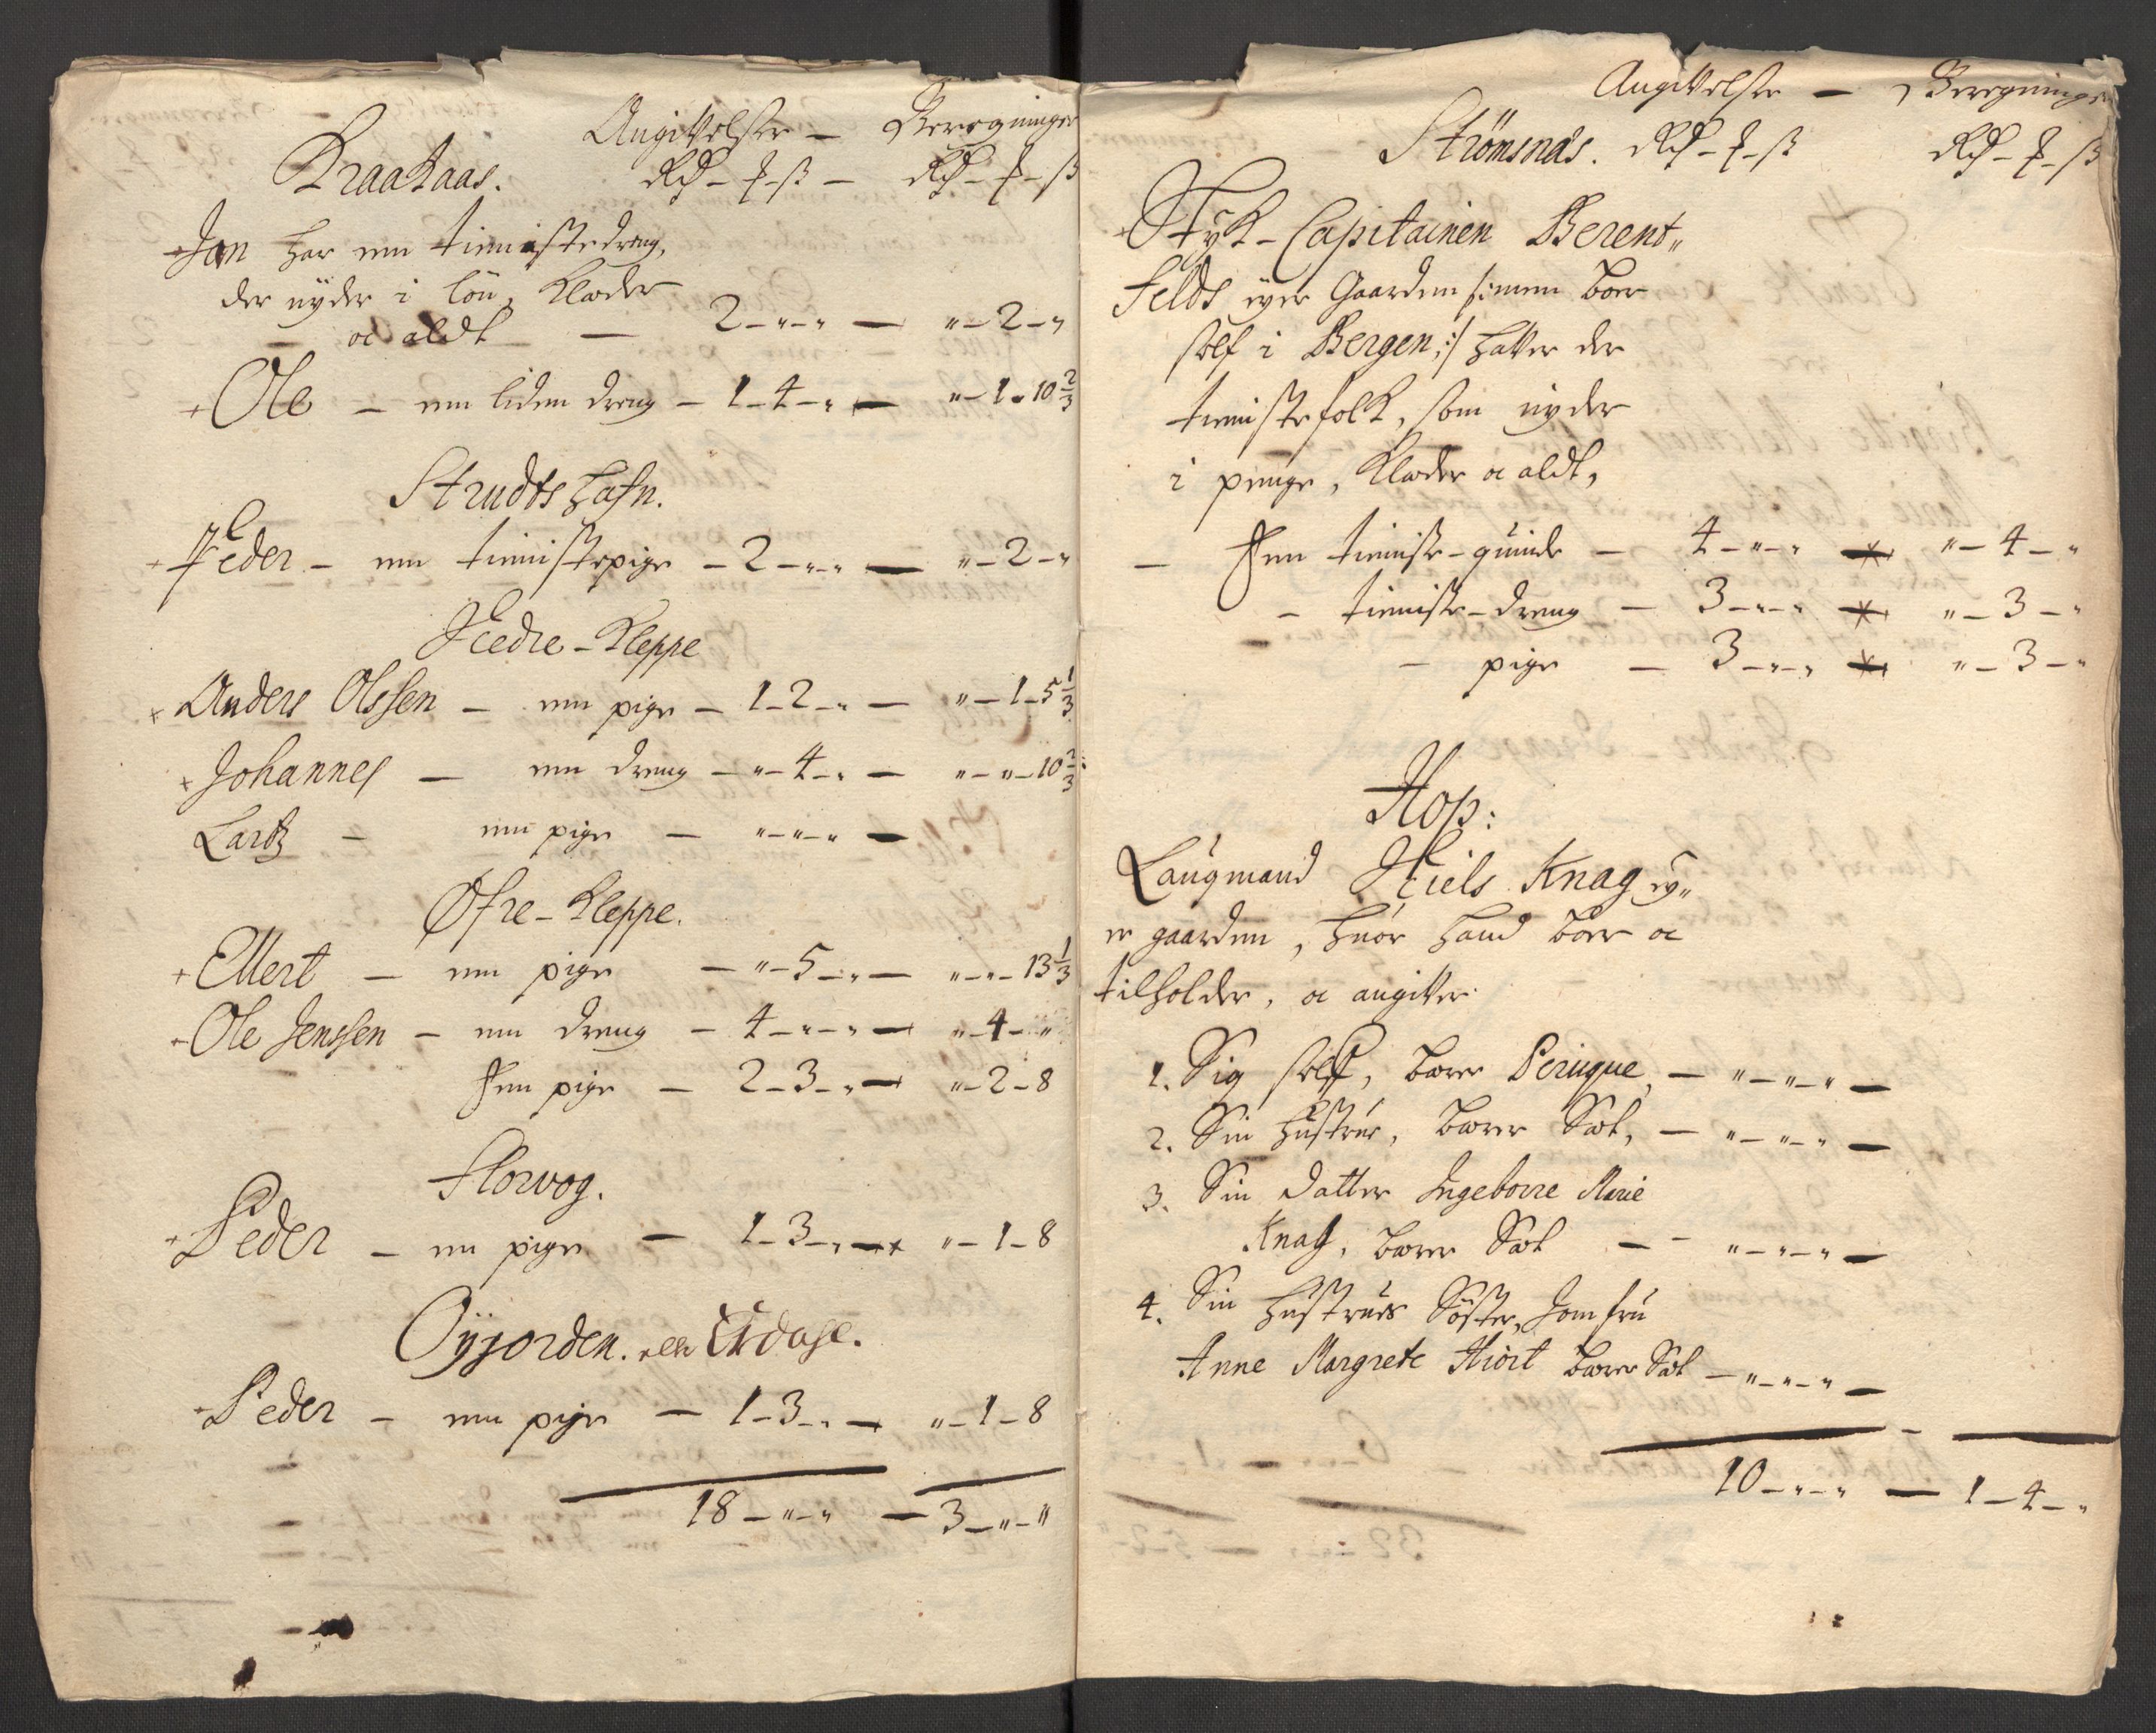 Angivelse – Beregninger
Kraakaas. Rd – ₰ – ß – Rd – ₰ – ß
+ Jan har en tienistedreng,
der nyder i løn, Klæder
oc aldt — 2 – „ – „ — „ – 2 – „
+ Ole – en liden dreng – 1 – 4 – „ — „ – 1 – 10 2/3
Strudtshafn.
+ Peder – en tienistepige – 2 – „ – „ — „ – 2 – „
Nedre – Kleppe
+ Anders Olssen – en pige – 1 – 2 – „ — „ – 1 – 5 1/3
+ Johannes – en dreng – „ – 4 – „ — „ – „ – 10 2/3
Lartz – en pige – „ – „ – „ —
Øfre – Kleppe.
+ Ellert – en pige – „ – 5 – „ — „ – „ – 13 1/3
- Ole Jenssen – en dreng – 4 – „ – „ — „ – 4 – „
Een pige – 2 – 3 – „ — „ – 2 – 8
Florvog.
+ Peder – en pige – 1 – 3 – „ — „ – 1 – 8
Oyjorden. eller
- Peder – en pige – 1 – 3 – „ — „ – 1 – 8
18 – „ – „ — 3 – „ – „
Angivelse – Beregninger
Strömsnæs. Rd – ₰ – ß Rd – ₰ – ß
+ Styk – Capitainen Berent„
Feldt eyer Gaarden /: men boer
self i Bergen :/ hafver der
tienistefolk, som nyder
i penge, Klæder oc aldt,
– Een tieniste – quinde – 4 – „ – „ — „ – 4 – „
– tieniste – dreng – 3 – „ – „ — „ – 3 – „
– pige – 3 – „ – „ — „ – 3 – „
Hop:
Laugmand Niels Knag ey„
er gaarden, huor hand boer oc
tilholder, oc angiver
1. Sig self, bærer Peruque, – „ – „ – „ —
2. Sin hustrue, bærer Sæt, – „ – „ – „ —
3. Sin datter Ingeborre Marie
Knag, bærer Sæt – – „ – „ – „ —
4. Sin hustrues Søster, Jomfru
Anne Margrete Hiort bærer Sæt – „ – „ – „ —
10 – „ – „ — 1 – 4 – „